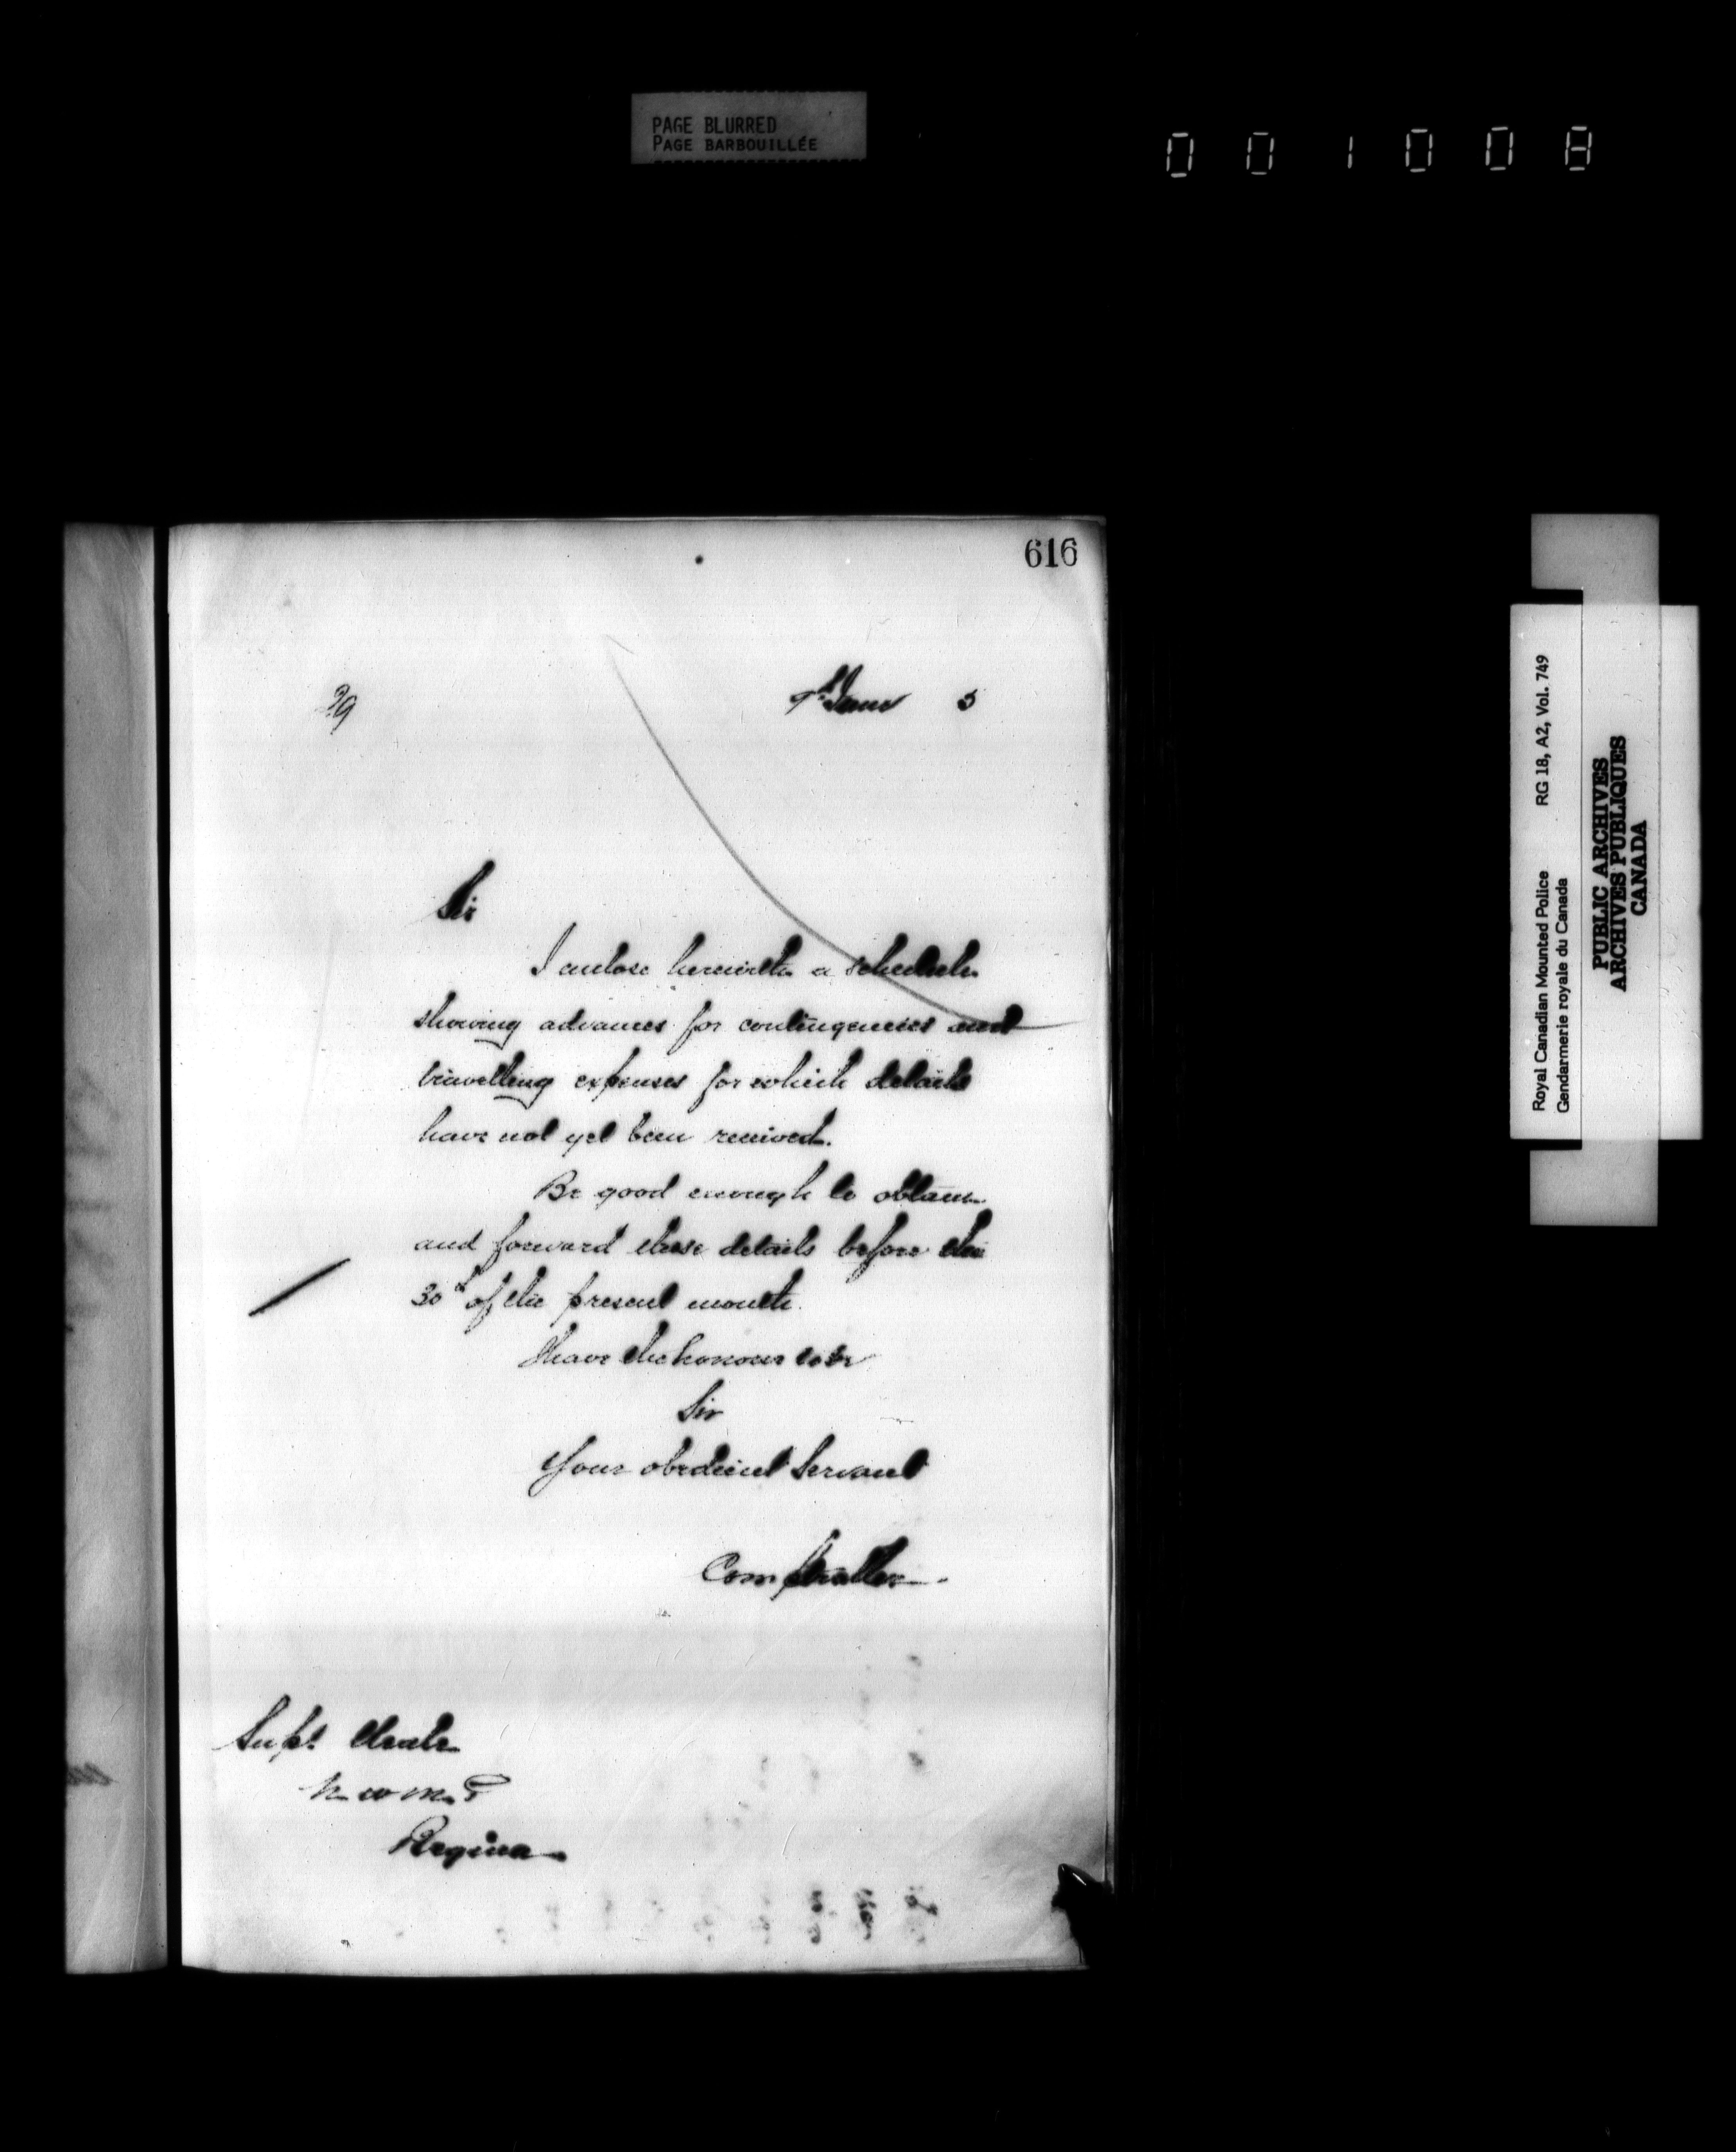 PAGE BLURRED
PAGE BARBOUILLÉE
001008
616
June 5
Sir
I enclose herewith a schedule
showing advances for contingencies and
travelling expenses for which details
have not yet been received.
Be good enough to obtain
and forward these details before the
30th of the present month.
I have the honour to be
Sir
Your obedient Servant
Comptroller
Supt.
N W M P
Regina
Royal Canadian Mounted Police RG 18, A2, Vol. 749
Gendarmerie royale du Canada
PUBLIC ARCHIVES
ARCHIVES PUBLIQUES
CANADA